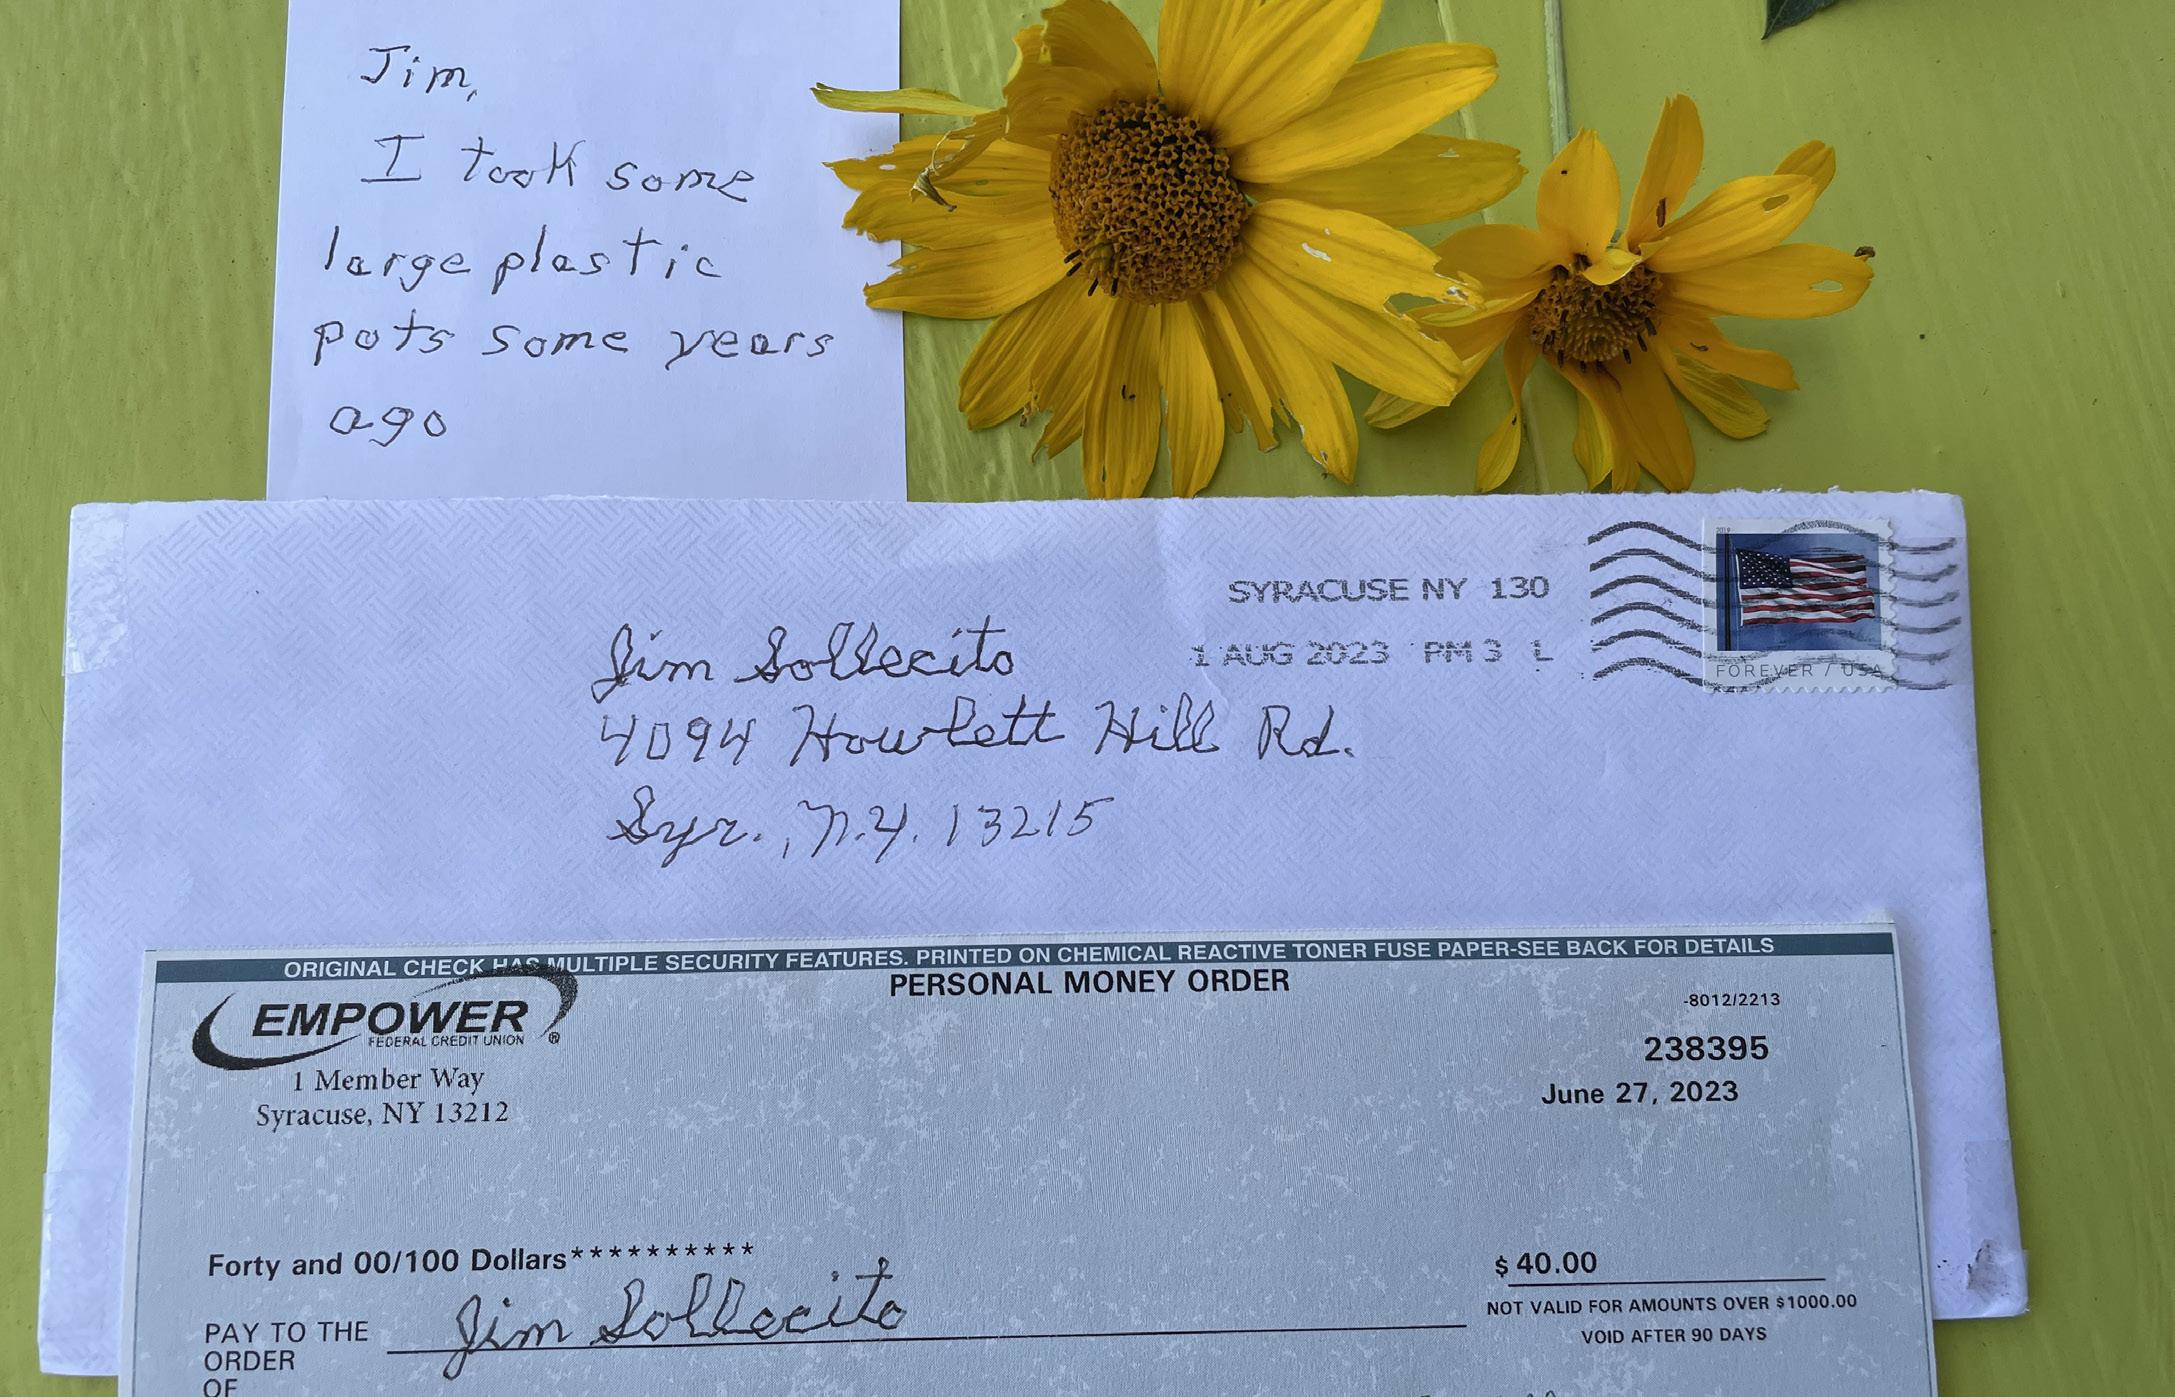 Jim,
I took some
large plastic
pots some years
ago
SYRACUSE NY 130
1 AUG 2023 PM 3 L
2019
FOREVER / USA
Jim Sollecito
4094 Howlett Hill Rd.
Syr., N.Y. 13215
ORIGINAL CHECK HAS MULTIPLE SECURITY FEATURES. PRINTED ON CHEMICAL REACTIVE TONER FUSE PAPER-SEE BACK FOR DETAILS
PERSONAL MONEY ORDER
EMPOWER
FEDERAL CREDIT UNION ®
1 Member Way
Syracuse, NY 13212
-8012/2213
238395
June 27, 2023
Forty and 00/100 Dollars**********
$ 40.00
NOT VALID FOR AMOUNTS OVER $1000.00
VOID AFTER 90 DAYS
PAY TO THE
ORDER
OF
Jim Sollecito